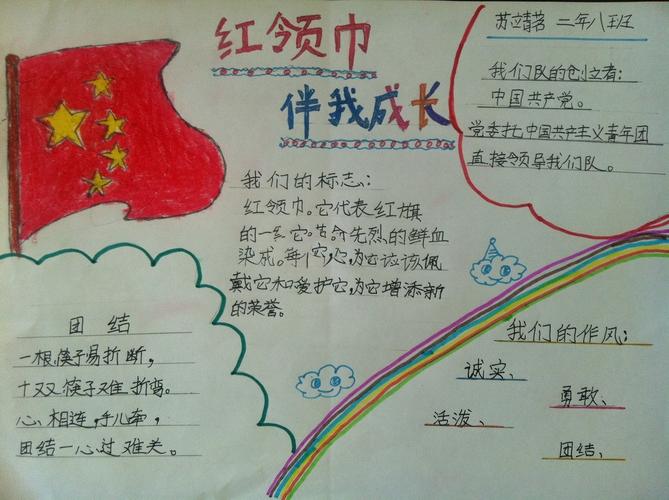 红领巾
伴我成长
苏立菁茗 二年八班
我们队的创立者:
中国共产党。
党委托中国共产主义青年团
直接领导我们队。
我们的标志:
红领巾。它代表红旗
的一 它。革命先烈的鲜血
染成。每 它应该佩
戴它和爱护它,为它增添新
的荣誉。
团结
一根筷子易折断,
十双筷子难折弯。
心相连,手儿牵,
团结一心过难关。
我们的作风:
诚实、
勇敢、
活泼、
团结、